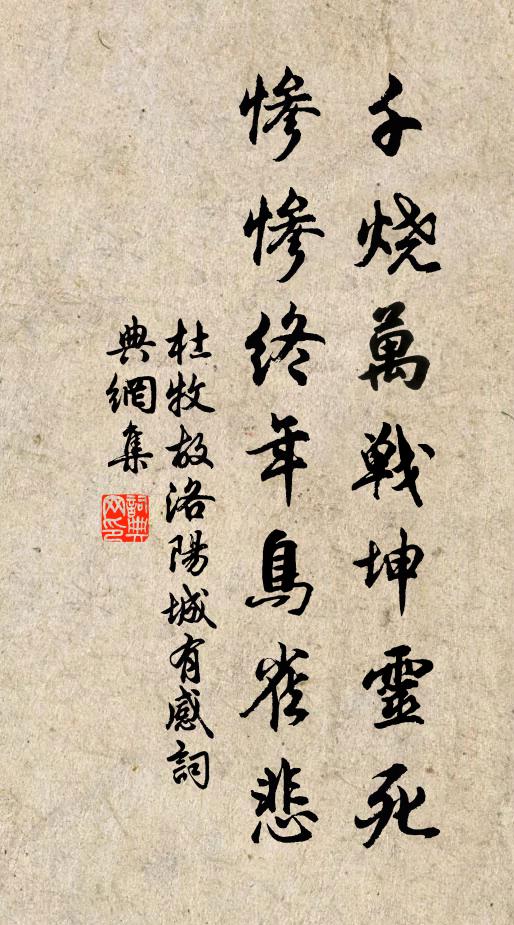 千烧萬戦坤靈死
慘慘終年鳥雀悲
杜牧故洛陽城有感詞
典網集
詞典網印